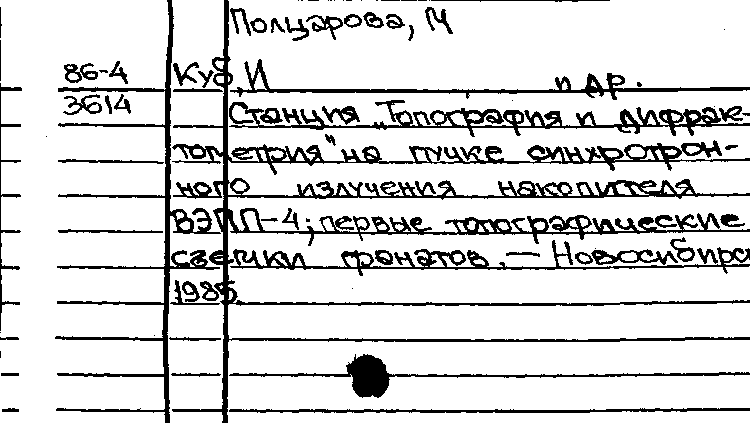 Полцарова, М
86-4 Куб, И и др.
3614 Станция „Топография и дифрак-
тометрия" на пучке синхротрон-
ного излучения накопителя
ВЭПП-4; первые топографические
съемки гранатов. — Новосибирс
1985.